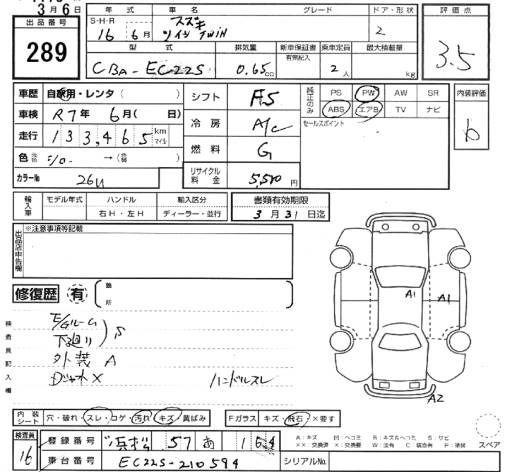 3月6日
出品番号
289
年式 車名 グレード ドア・形状
S・H・R 16年6月 スズキ ツイン TWIN 2
型式 排気量 新車保証書 有無記入 乗車定員 最大積載量
CBA-EC22S 0.65 cc 2人 kg
評価点
3.5
車歴 自家用・レンタ( )
車検 R7年 6月( 日)
走行 133,465 km マイル
色 元色 →( )
カラーNo 26U
シフト F5
冷房 A/C
燃料 G
リサイクル料金 5,510
純正のみ PS PW AW SR
ABS エアB TV ナビ
セールスポイント
内装評価
輸入車 モデル年式 ハンドル 右H・左H 輸入区分 ディーラー・並行
書類有効期限
3月31日迄
出品店申告欄 ※注意事項等記載
修復歴 有 箇所
検査員記入欄
E/Gルーム
下廻り S
外装 A
ジャッキ×
ハンドルスレ
A1 A1
A2
内装シート 穴・破れ・スレ・コゲ・汚れ・キズ・黄ばみ
Fガラス キズ・飛石・×要す
スペア
検査員 16
登録番号 浜松 57 あ 164
車台番号 EC22S-210594
シリアルNo.